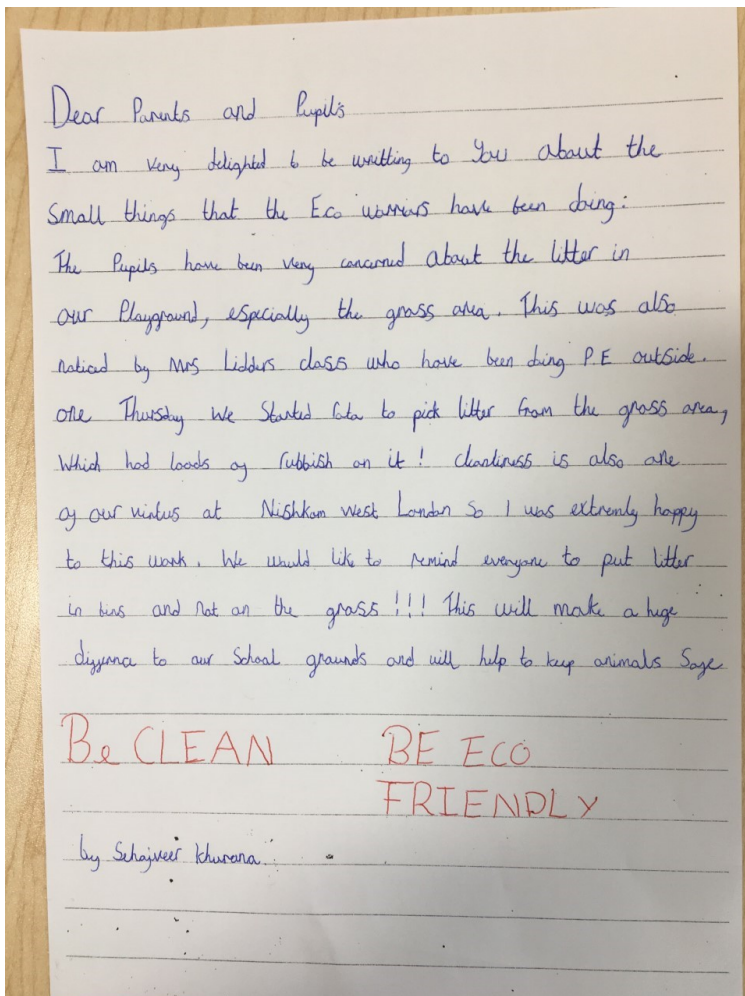 Dear Parents and Pupil's
I am very delighted to be writting to You about the
Small things that the Eco warriors have been doing:
The Pupils have been very concerned about the litter in
our Playground, especially the grass area. This was also
noticed by Mrs Lidders class who have been doing P.E outside.
one Thursday we Started to pick litter from the grass area,
Which had loads of rubbish on it! cleanliness is also one
of our virtus at Nishkam West London So I was extremly happy
to this work. We would like to remind everyone to put litter
in bins and not on the grass!!! This will make a huge
differnce to our School grounds and will help to keep animals Safe
Be CLEAN BE ECO
FRIENDLY
by Sehajveer Khurana